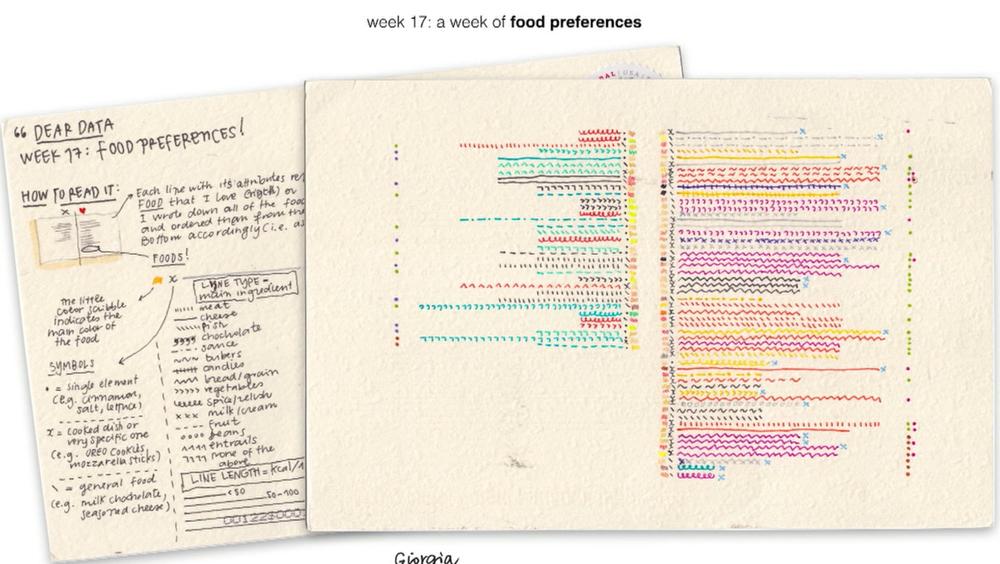 week 17: a week of food preferences
“ DEAR DATA
WEEK 17: FOOD PREFERENCES!
HOW TO READ IT:
Each line with its attributes
FOOD that I love (right) or
I wrote down all of the
and ordered them from the
Bottom accordingly (i.e. as
x ♥
FOODS!
the little
color scribble
indicates the
main color of
the food
x
LINE TYPE -
main ingredient
meat
cheese
fish
chocholate
sauce
tubers
candies
bread/grain
vegetables
spice/relish
milk/cream
fruit
beans
entrails
none of the
above
SYMBOLS
• = single element
(e.g. cinnamon,
salt, lettuce)
x = cooked dish or
very specific one
(e.g. OREO COOKIES,
mozzarella sticks)
\ = general food
(e.g. milk chocholate,
seasoned cheese)
LINE LENGTH = Kcal/1
<50 50-100
Giorgia